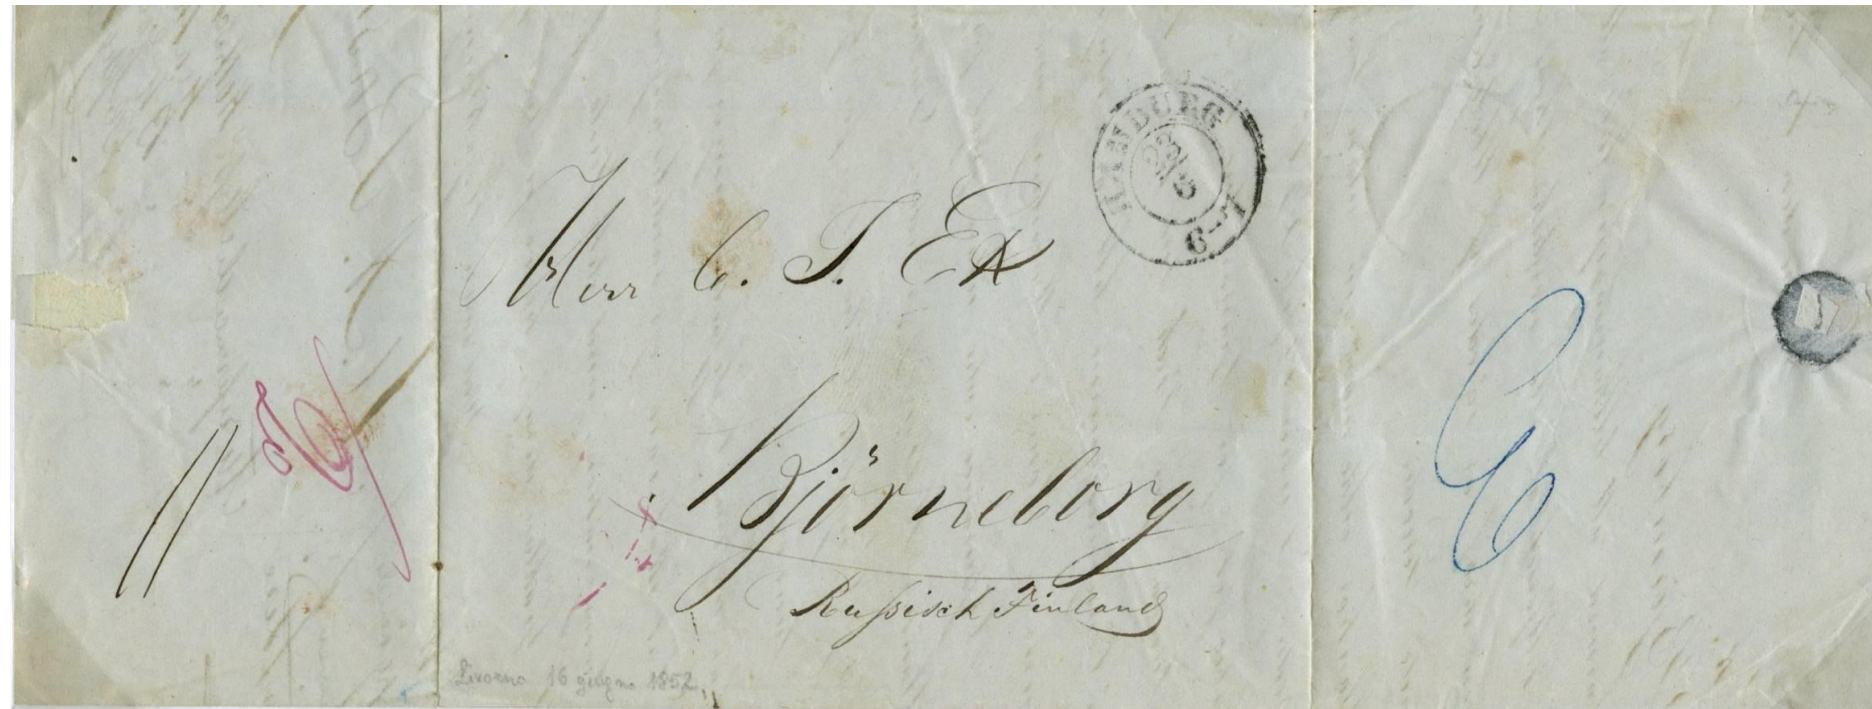 HAMBURG
23
5
6-7
Herr C. J. Ek
Björneborg
Russisch Finland
Livorno 16 giugno 1852